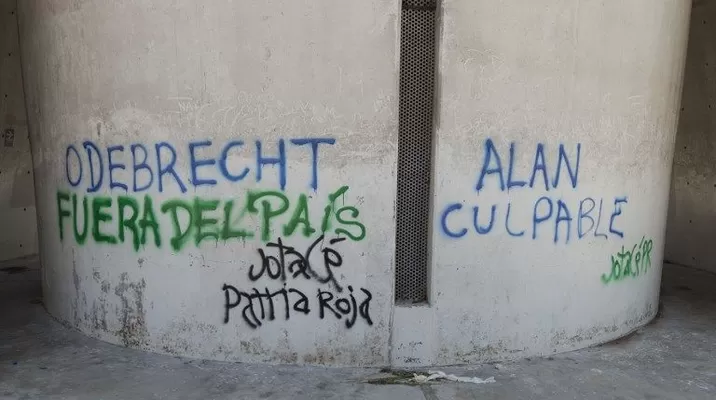 ODEBRECHT
FUERA DEL PAÍS
JotaCé
Patria Roja
ALAN
CULPABLE
JotaCé PR